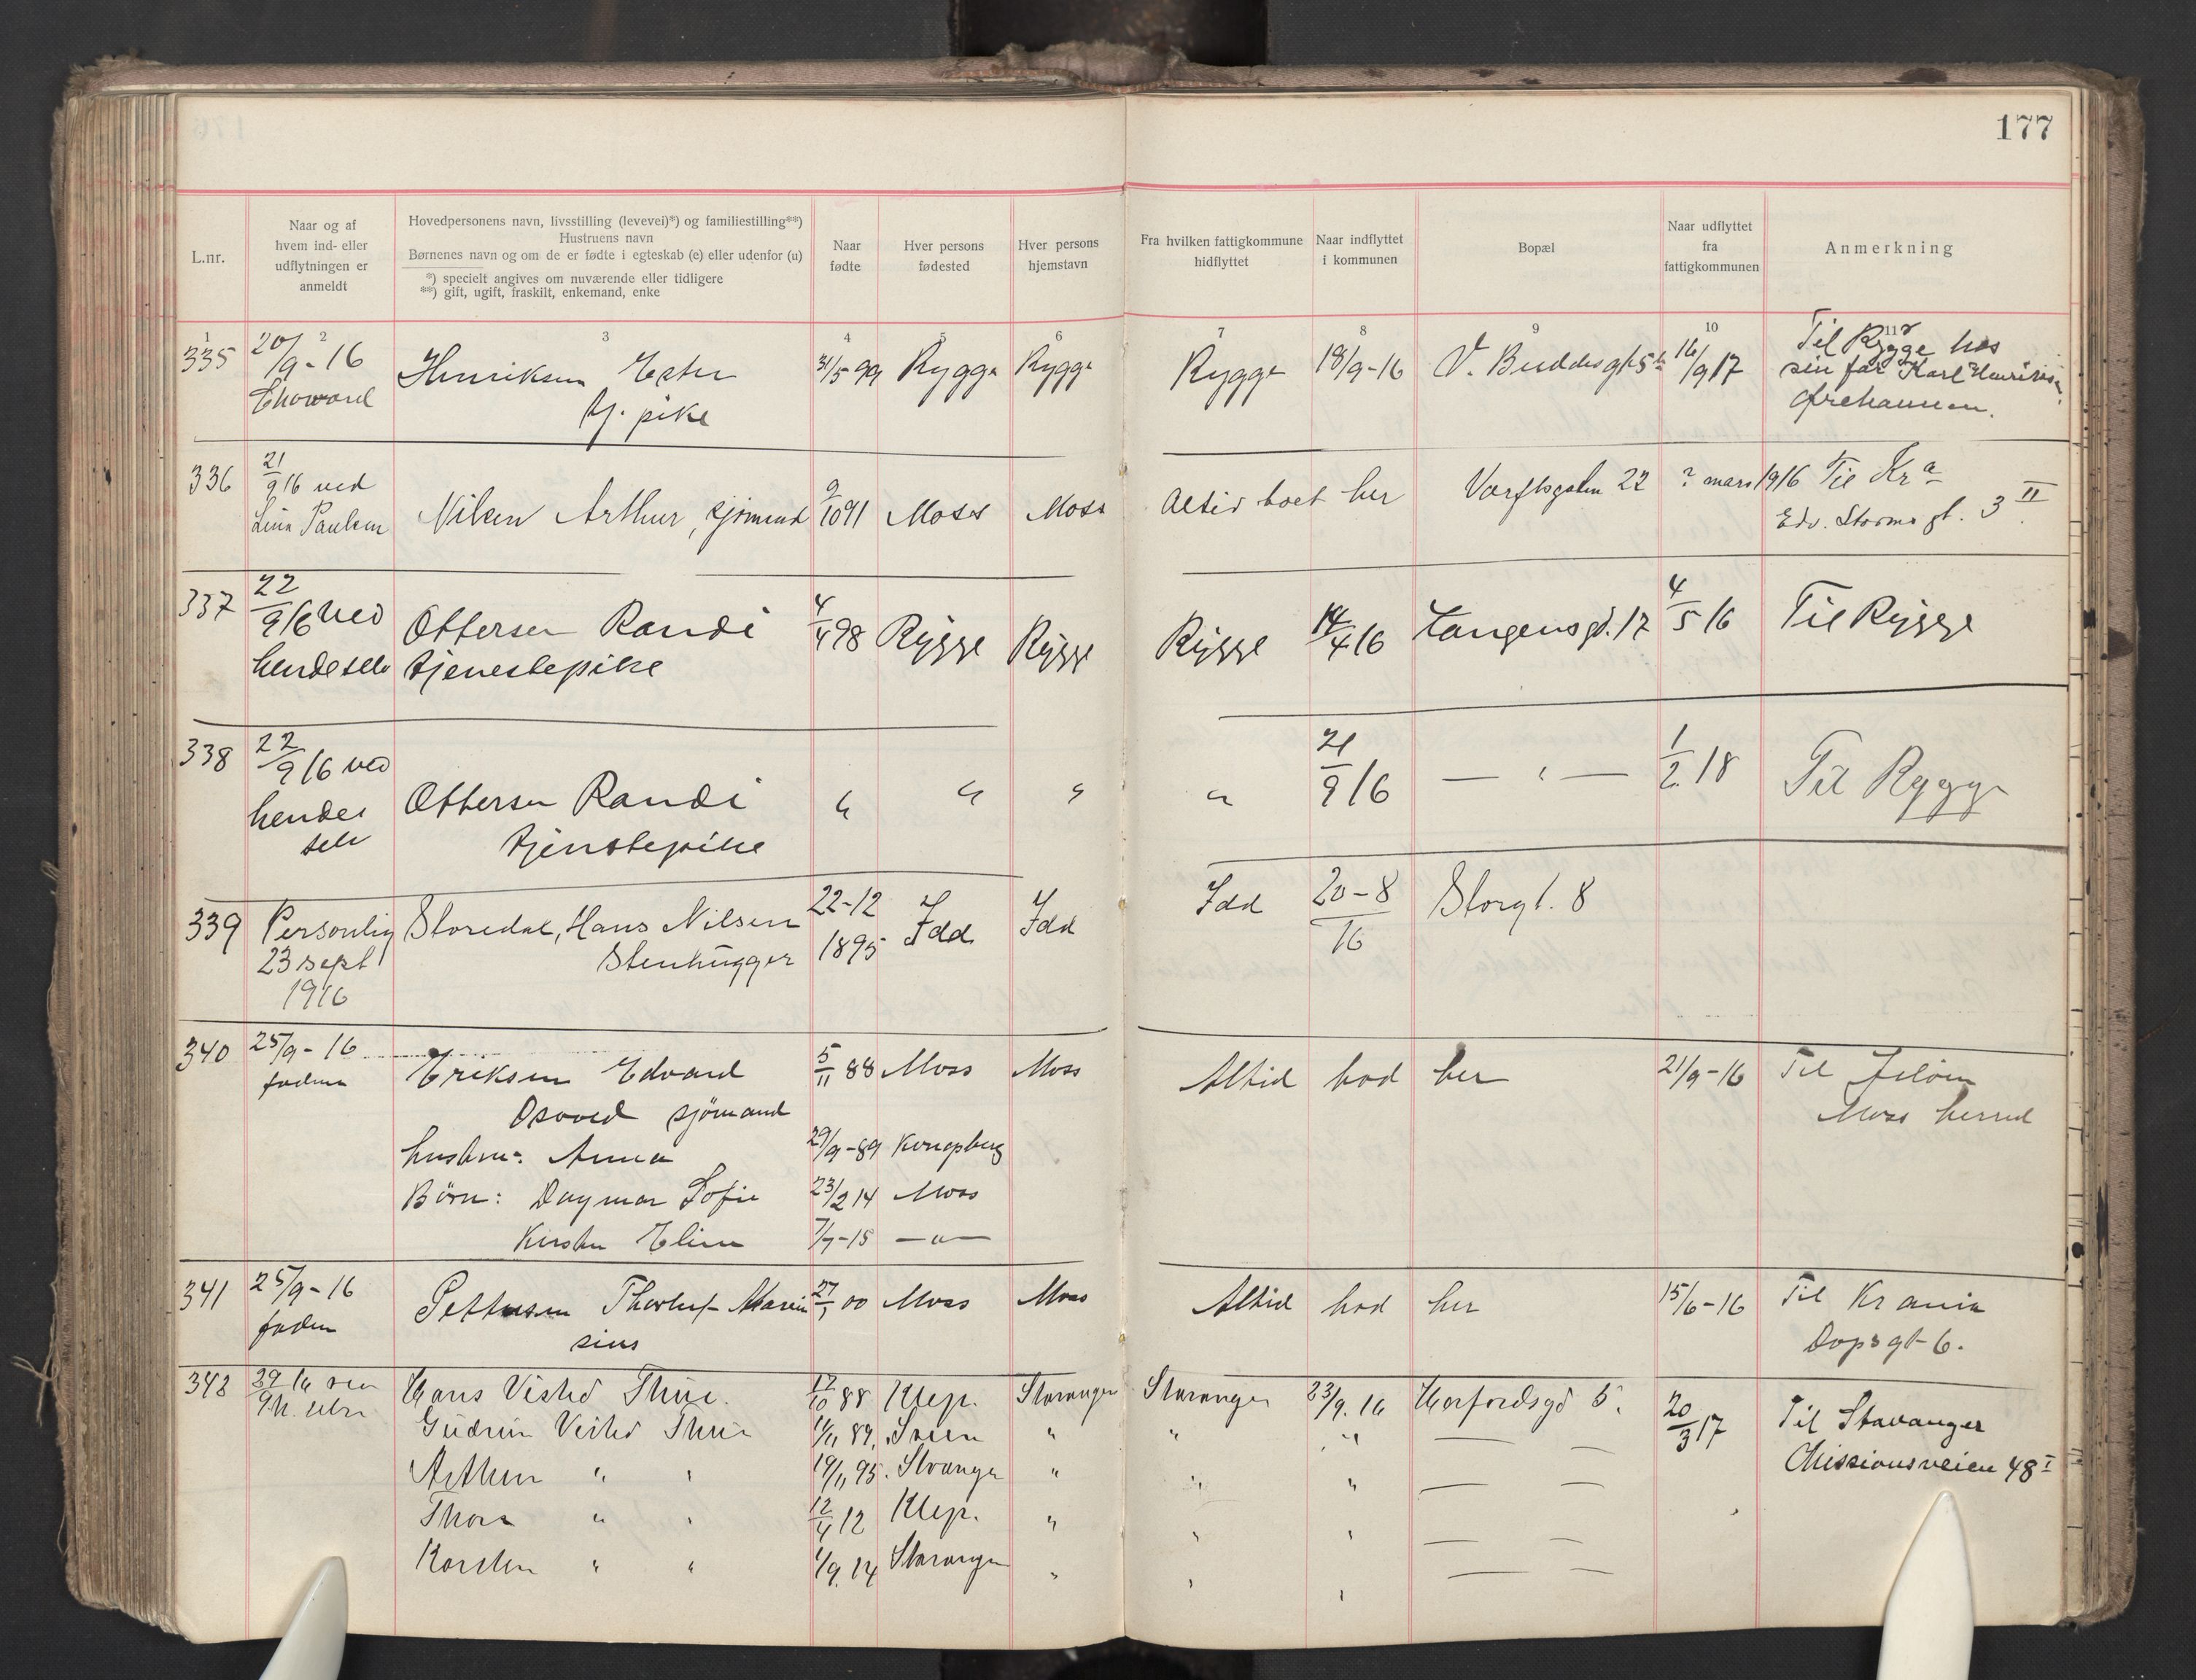 177
L.nr.
Naar og af
hvem ind- eller
udflytningen er
anmeldt
Hovedpersonens navn, livsstilling (levevei)*) og familiestilling**)
Hustruens navn
Børnenes navn og om de er fødte i egteskab (e) eller udenfor (u)
*) specielt angives om nuværende eller tidligere
**) gift, ugift, fraskilt, enkemand, enke
Naar
fødte
Hver persons
fødested
Hver persons
hjemstavn
Fra hvilken fattigkommune
hidflyttet
Naar indflyttet
i kommunen
Bopæl
Naar udflyttet
fra
fattigkommunen
Anmerkning
1 2 3 4 5 6 7 8 9 10 11
335 20/9-16 Henriksen Ester 31/5 99 Rygge Rygge Rygge 18/9-16 V. Buddesgt 16/9 17 Til Rygge hos
tj. pike sin far Karl Henriksen
336 21/9 16 ved Nilsen Arthur, sjömand 9/10 91 Moss Moss Altid boet her Varftsgaten 22 ? mars 1916 Til Kr a
Lina Paulsen Edv. Storms gt. 3 II
337 22/9 16 ved Ottersen Randi 4/4 98 Rygge Rygge Rygge 14/4 16 Langensgd. 17 4/5 16 Til Rygge
hende selv tjenestepike
338 22/9 16 ved Ottersen Randi " " " " 21/9 16 — " — 1/2 18 Til Rygge
hendes
selv tjenstepike
339 Personlig Storedal, Hans Nilsen 22-12 1895 Idd Idd Idd 20-8/16 Storgt. 8
23 sept Stenhugger
1916
340 25/9-16 Eriksen Edvard 5/11 88 Moss Moss Altid bod her 21/9-16 Til Jelöen
Osvald sjömand Moss herred
hustru: Anna 29/9-89 Kongsberg
Börn: Dagmar Sofie 23/2 14 Moss
Kirsten Eline 7/7-15 — " —
341 25/9-16 Pettersen Thorleif Marin 27/1 00 Moss Moss Altid bod her 15/6-16 Til Kr ania
sius Dops gt 6.
342 Hans Visted Thue. 17/10 88 Klep. Stavanger Stavanger 23/9. 16 20/3 17 Til Stavanger
Gudrun Visted Thue " " " — — Missionsveien 48 I
Arthur " " 19/11 95. Stvanger " " " — —
Thora " " 12/4 12 Klep. " " " — —
Karsten " " 1/9. 14 Stavanger " " " — —